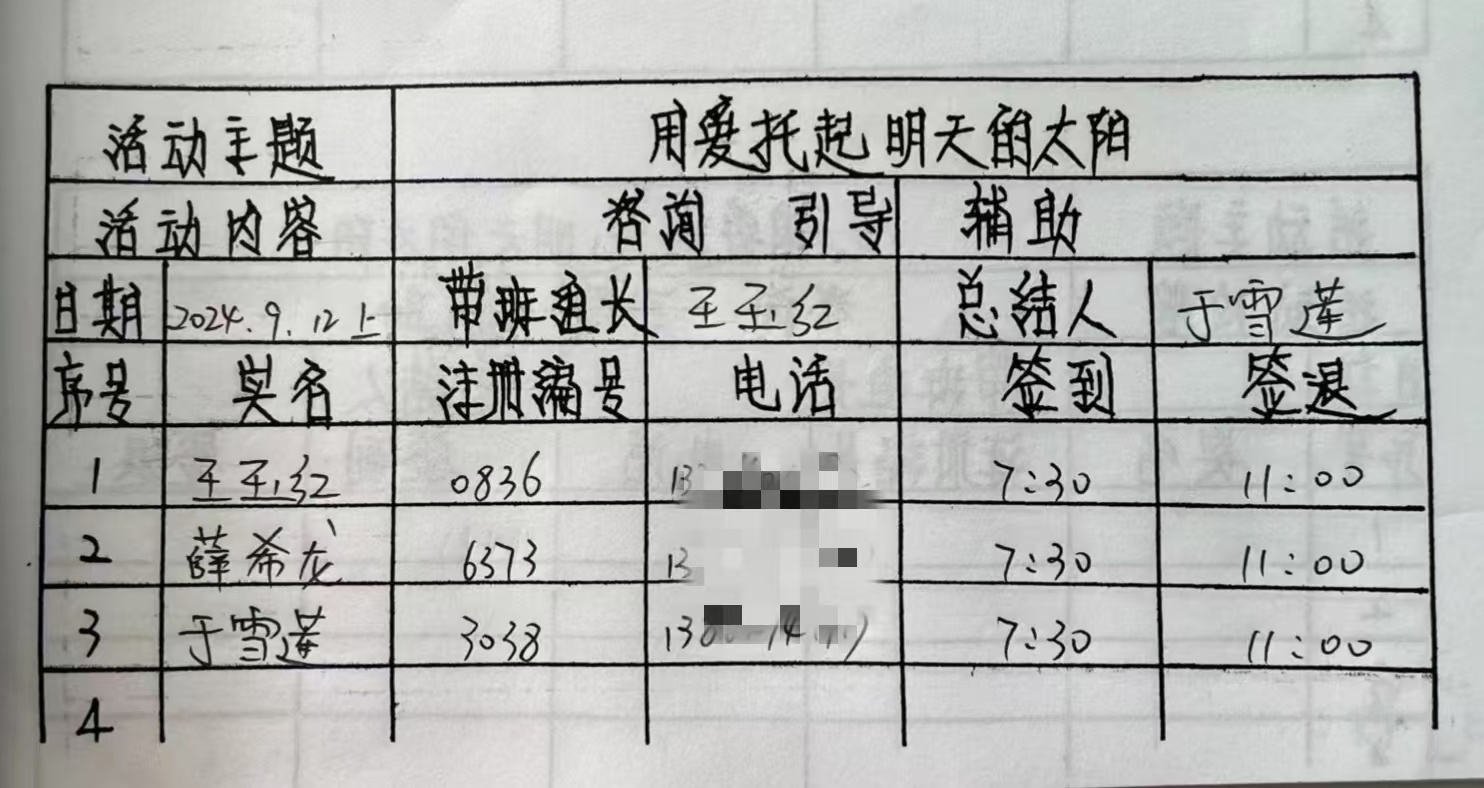 活动主题 用爱托起明天的太阳
活动内容 咨询 引导 辅助
日期 2024.9.12上 带班组长 王玉红 总结人 于雪莲
序号 姓名 注册编号 电话 签到 签退
1 王玉红 0836 13 7:30 11:00
2 薛希龙 6373 13 7:30 11:00
3 于雪莲 3038 13 7:30 11:00
4